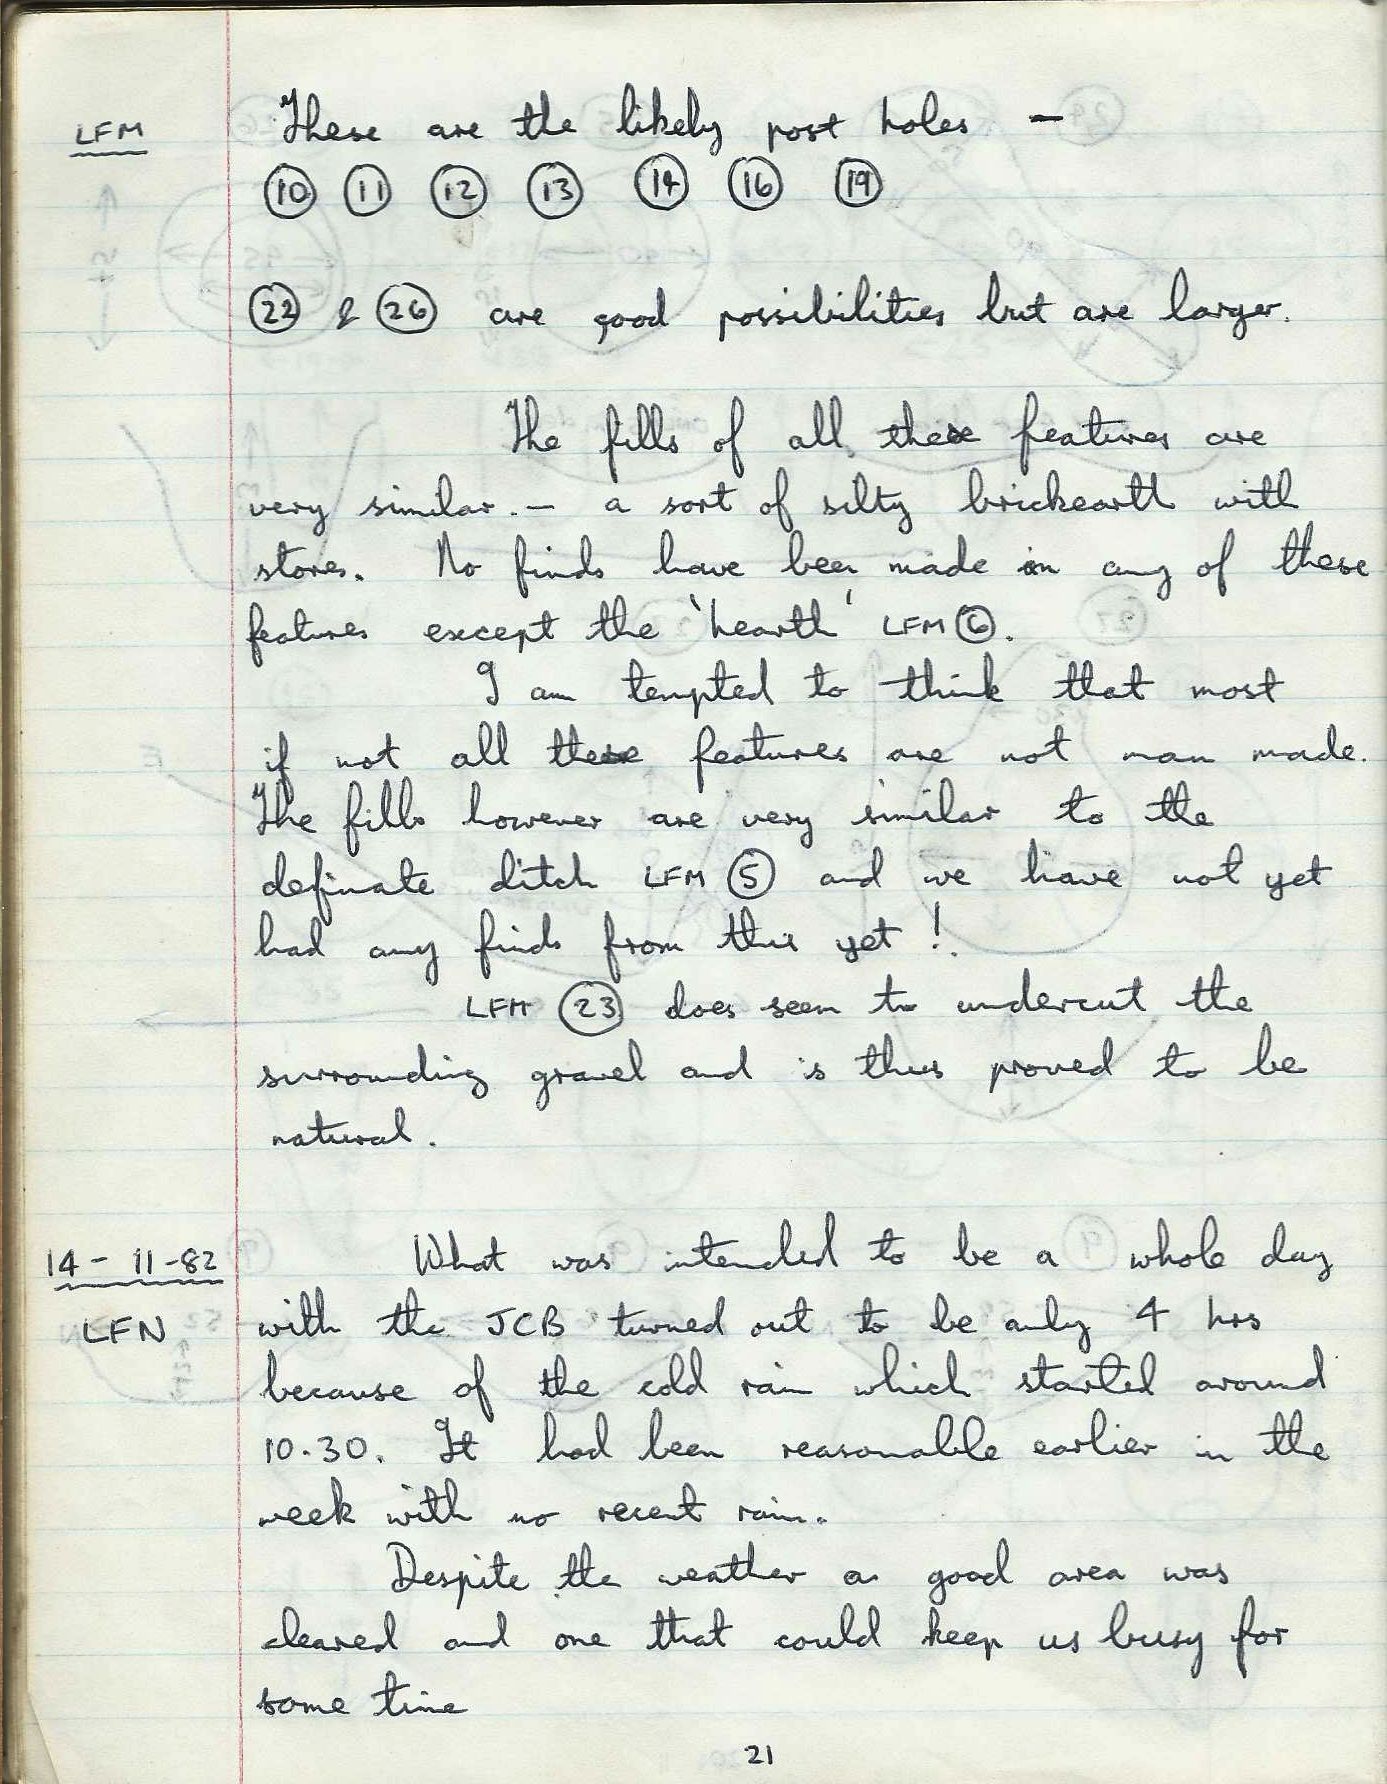 LFM These are the likely post holes -
10 11 12 13 14 16 19
22 & 26 are good possibilities but are larger.
The fills of all these features are
very similar. - a sort of silty brickearth with
stones. No finds have been made in any of these
features except the 'hearth' LFM 6.
I am tempted to think that most
if not all these features are not man made.
The fills however are very similar to the
definate ditch LFM 5 and we have not yet
had any finds from this yet!
LFM 23 does seem to undercut the
surrounding gravel and is thus proved to be
natural.
14-11-82 What was intended to be a whole day
LFN with the JCB turned out to be only 4 hrs
because of the cold rain which started around
10.30. It had been reasonable earlier in the
week with no recent rain.
Despite the weather a good area was
cleared and one that could keep us busy for
some time
21